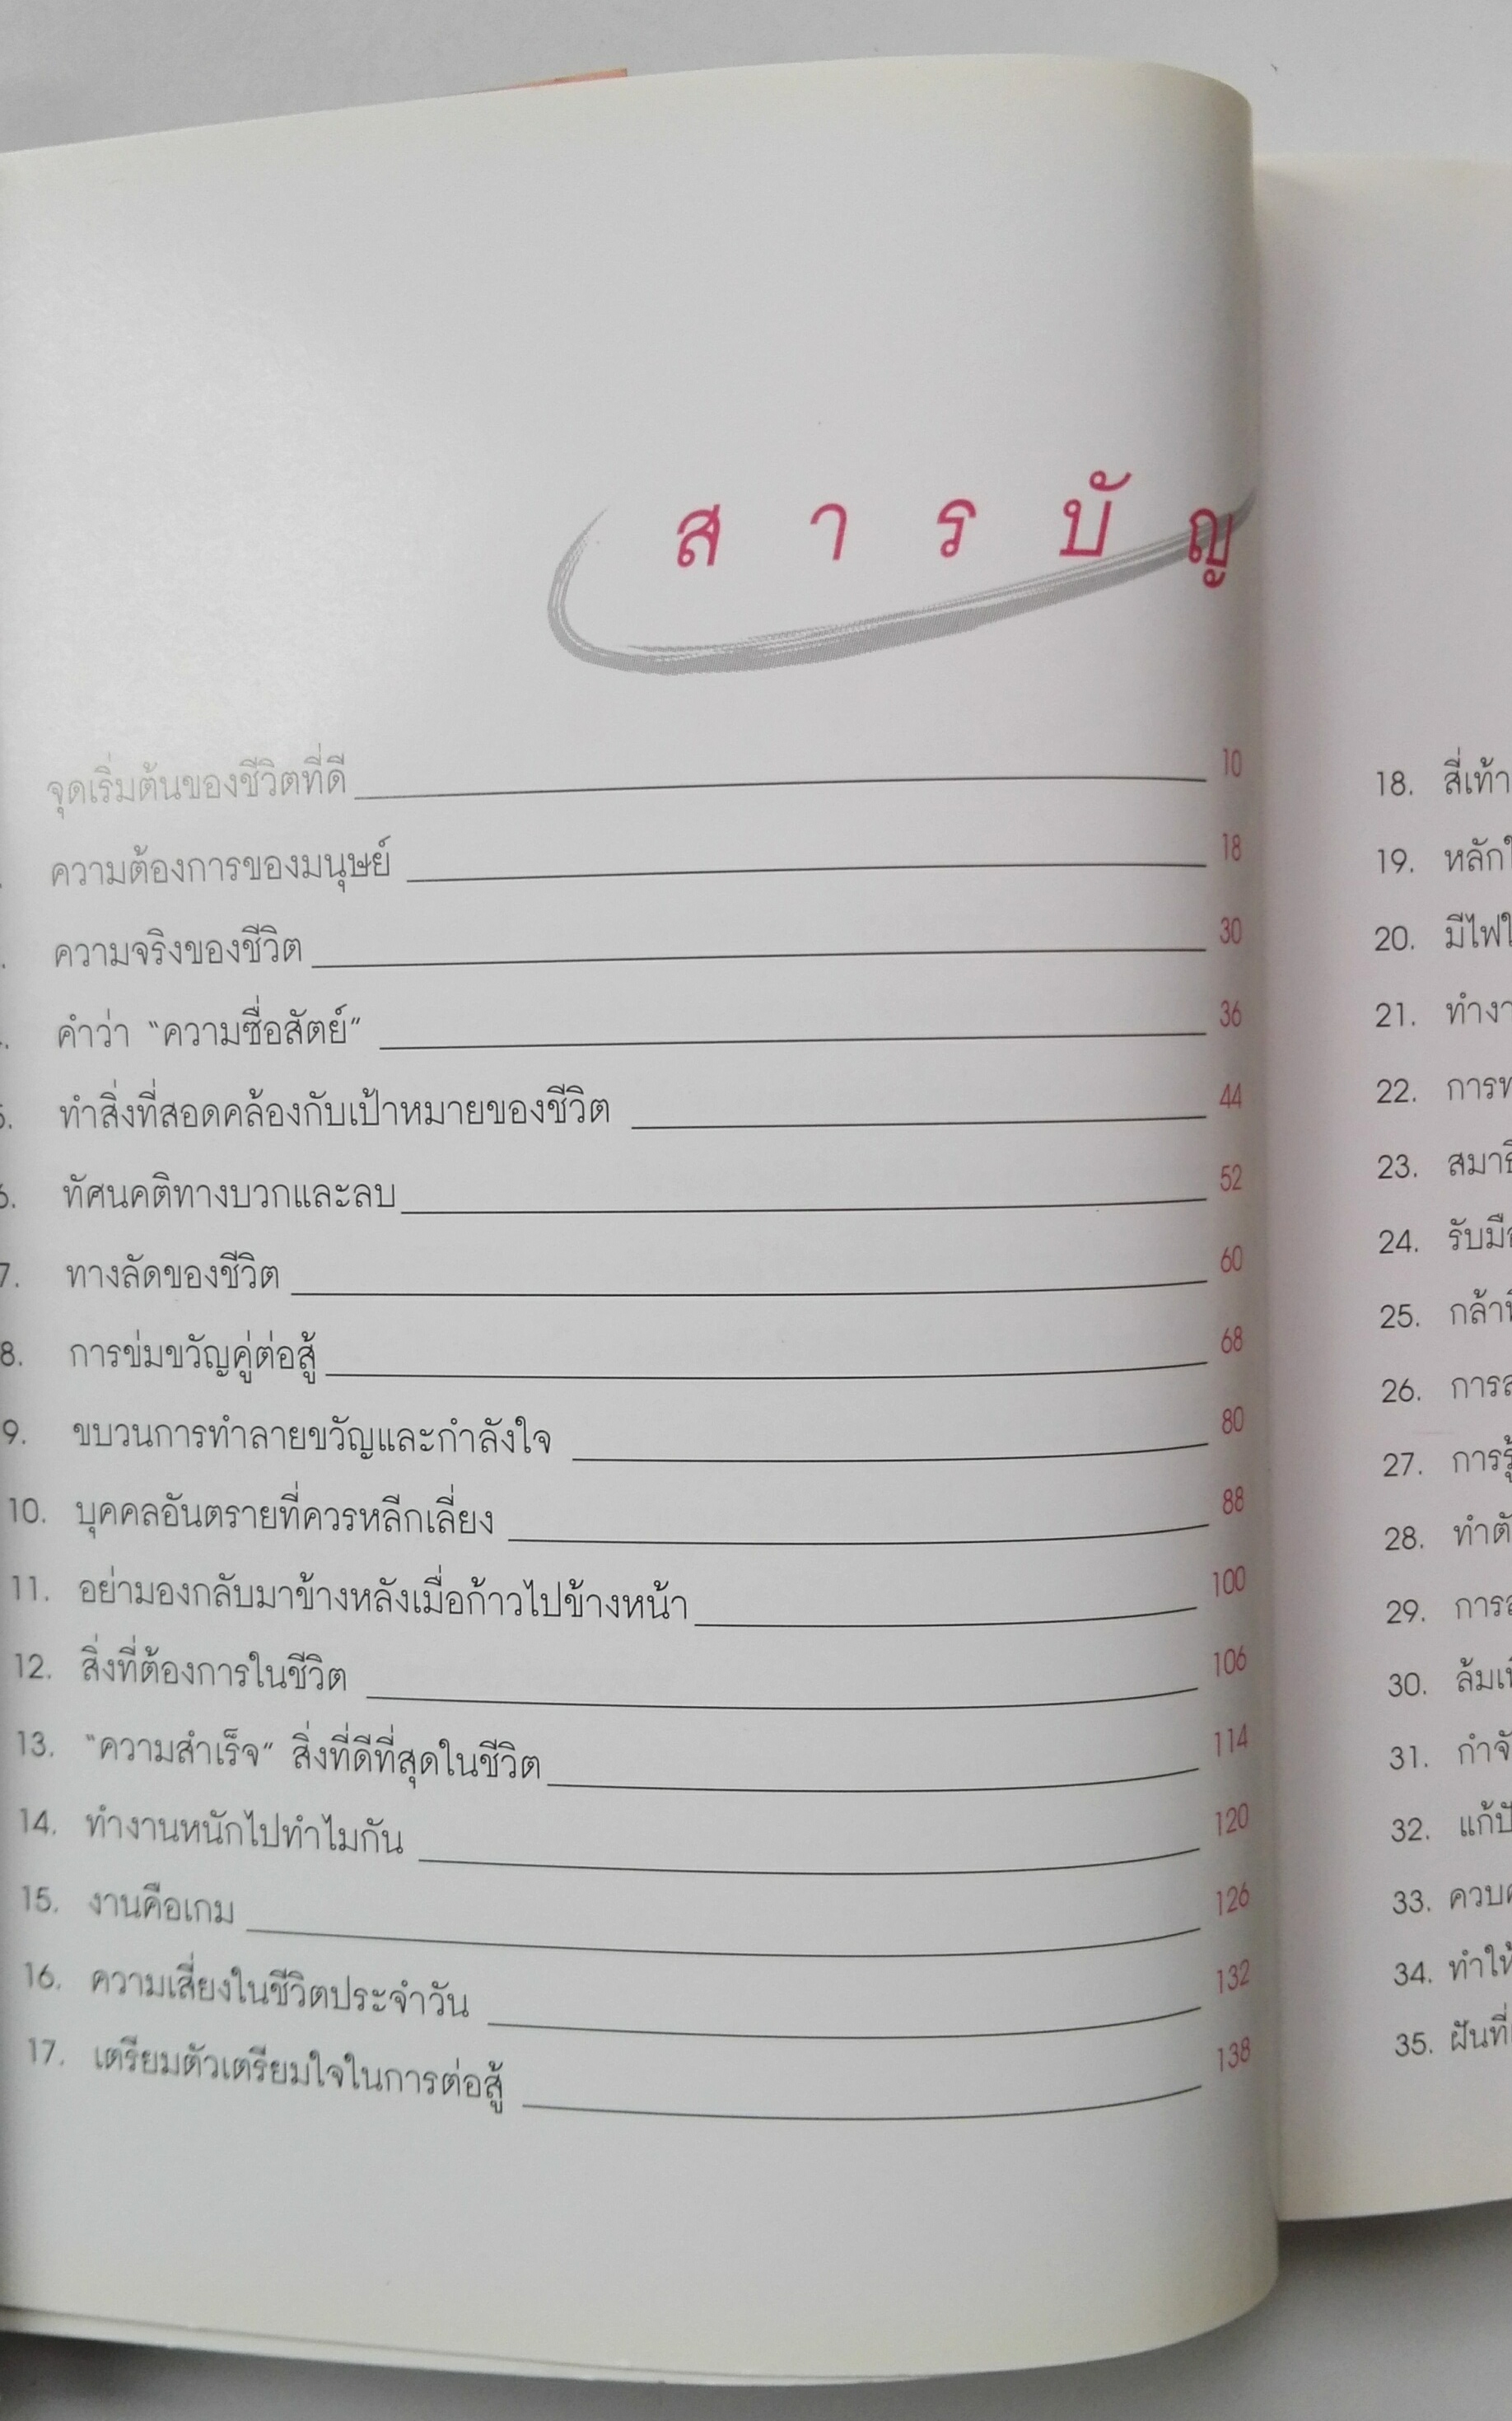 สารบัญ
จุดเริ่มต้นของชีวิตที่ดี 10
ความต้องการของมนุษย์ 18
ความจริงของชีวิต 30
คำว่า “ความซื่อสัตย์” 36
ทำสิ่งที่สอดคล้องกับเป้าหมายของชีวิต 44
6. ทัศนคติทางบวกและลบ 52
7. ทางลัดของชีวิต 60
8. การข่มขวัญคู่ต่อสู้ 68
9. ขบวนการทำลายขวัญและกำลังใจ 80
10. บุคคลอันตรายที่ควรหลีกเลี่ยง 88
11. อย่ามองกลับมาข้างหลังเมื่อก้าวไปข้างหน้า 100
12. สิ่งที่ต้องการในชีวิต 106
13. “ความสำเร็จ” สิ่งที่ดีที่สุดในชีวิต 114
14. ทำงานหนักไปทำไมกัน 120
15. งานคือเกม 126
16. ความเสี่ยงในชีวิตประจำวัน 132
17. เตรียมตัวเตรียมใจในการต่อสู้ 138
18. สี่เท้า
19. หลัก
20. มีไฟ
21.
22. การ
23.
24.
25. กล้า
26. การ
27. การ
28. ทำ
29. การ
30.
31.
32.
33.
34. ทำให้
35. ฝันที่